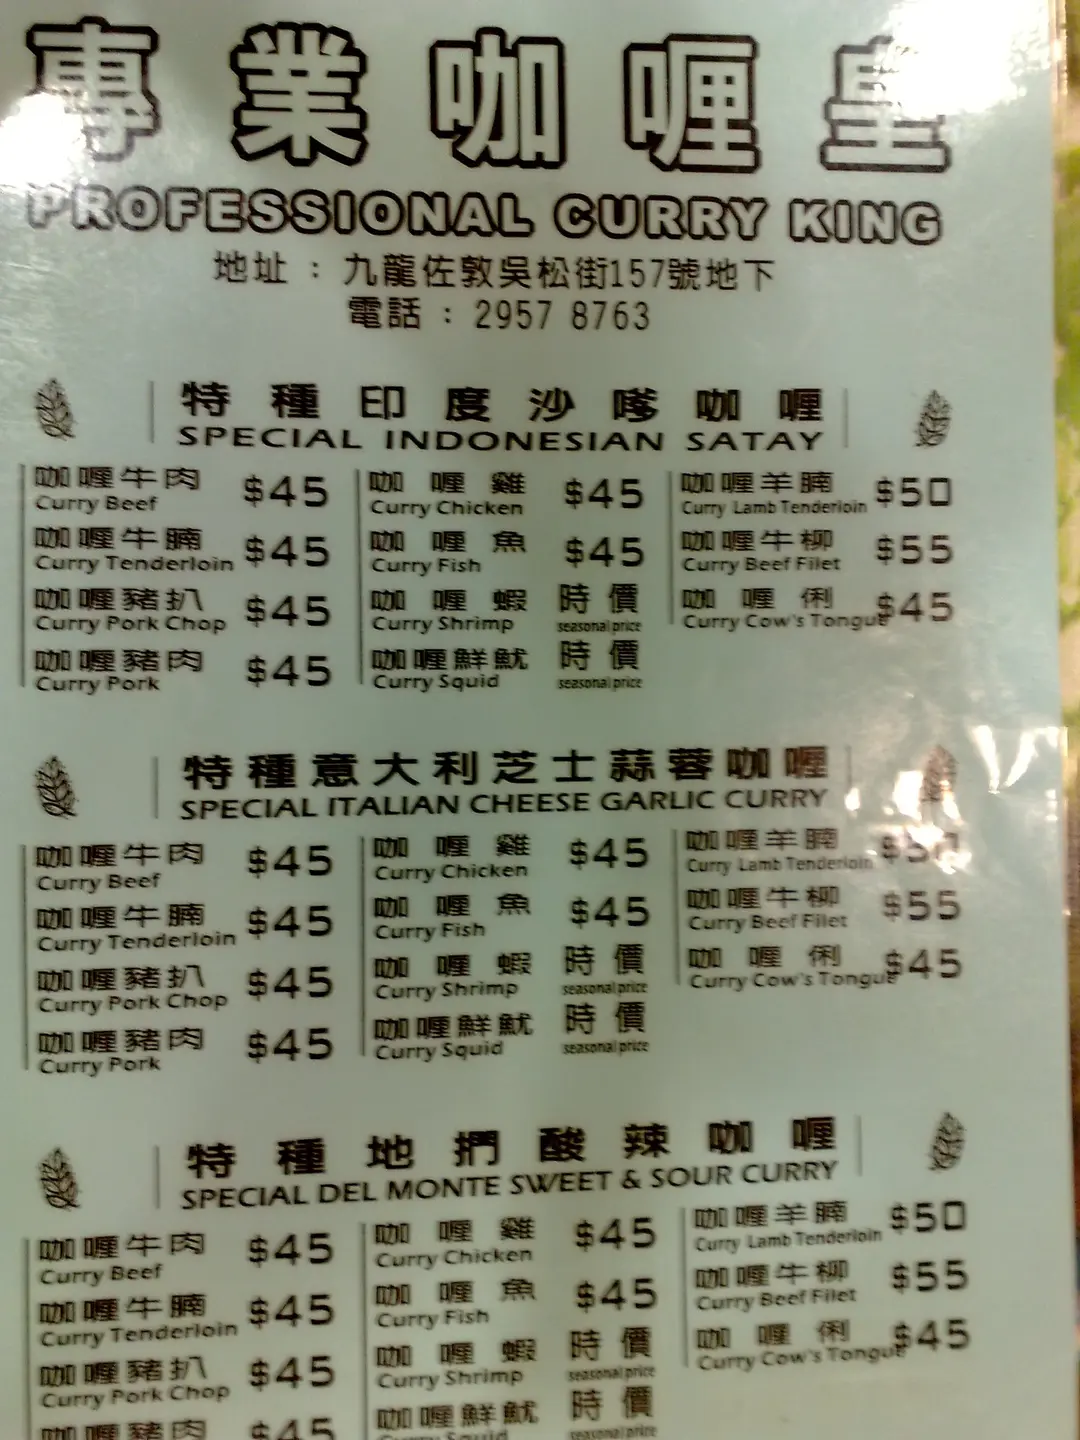 專業咖喱皇
PROFESSIONAL CURRY KING
地址：九龍佐敦吳松街157號地下
電話：2957 8763
特種印度沙嗲咖喱
SPECIAL INDONESIAN SATAY
咖喱牛肉 $45
Curry Beef
咖喱牛腩 $45
Curry Tenderloin
咖喱豬扒 $45
Curry Pork Chop
咖喱豬肉 $45
Curry Pork
咖喱雞 $45
Curry Chicken
咖喱魚 $45
Curry Fish
咖喱蝦 時價
Curry Shrimp seasonal price
咖喱鮮魷 時價
Curry Squid seasonal price
咖喱羊腩 $50
Curry Lamb Tenderloin
咖喱牛柳 $55
Curry Beef Filet
咖喱脷 $45
Curry Cow's Tongue
特種意大利芝士蒜蓉咖喱
SPECIAL ITALIAN CHEESE GARLIC CURRY
咖喱牛肉 $45
Curry Beef
咖喱牛腩 $45
Curry Tenderloin
咖喱豬扒 $45
Curry Pork Chop
咖喱豬肉 $45
Curry Pork
咖喱雞 $45
Curry Chicken
咖喱魚 $45
Curry Fish
咖喱蝦 時價
Curry Shrimp seasonal price
咖喱鮮魷 時價
Curry Squid seasonal price
咖喱羊腩 $50
Curry Lamb Tenderloin
咖喱牛柳 $55
Curry Beef Filet
咖喱脷 $45
Curry Cow's Tongue
特種地捫酸辣咖喱
SPECIAL DEL MONTE SWEET & SOUR CURRY
咖喱牛肉 $45
Curry Beef
咖喱牛腩 $45
Curry Tenderloin
咖喱豬扒 $45
Curry Pork Chop
咖喱豬肉 $45
咖喱雞 $45
Curry Chicken
咖喱魚 $45
Curry Fish
咖喱蝦 時價
Curry Shrimp seasonal price
咖喱鮮魷 時價
Curry Squid seasonal price
咖喱羊腩 $50
Curry Lamb Tenderloin
咖喱牛柳 $55
Curry Beef Filet
咖喱脷 $45
Curry Cow's Tongue